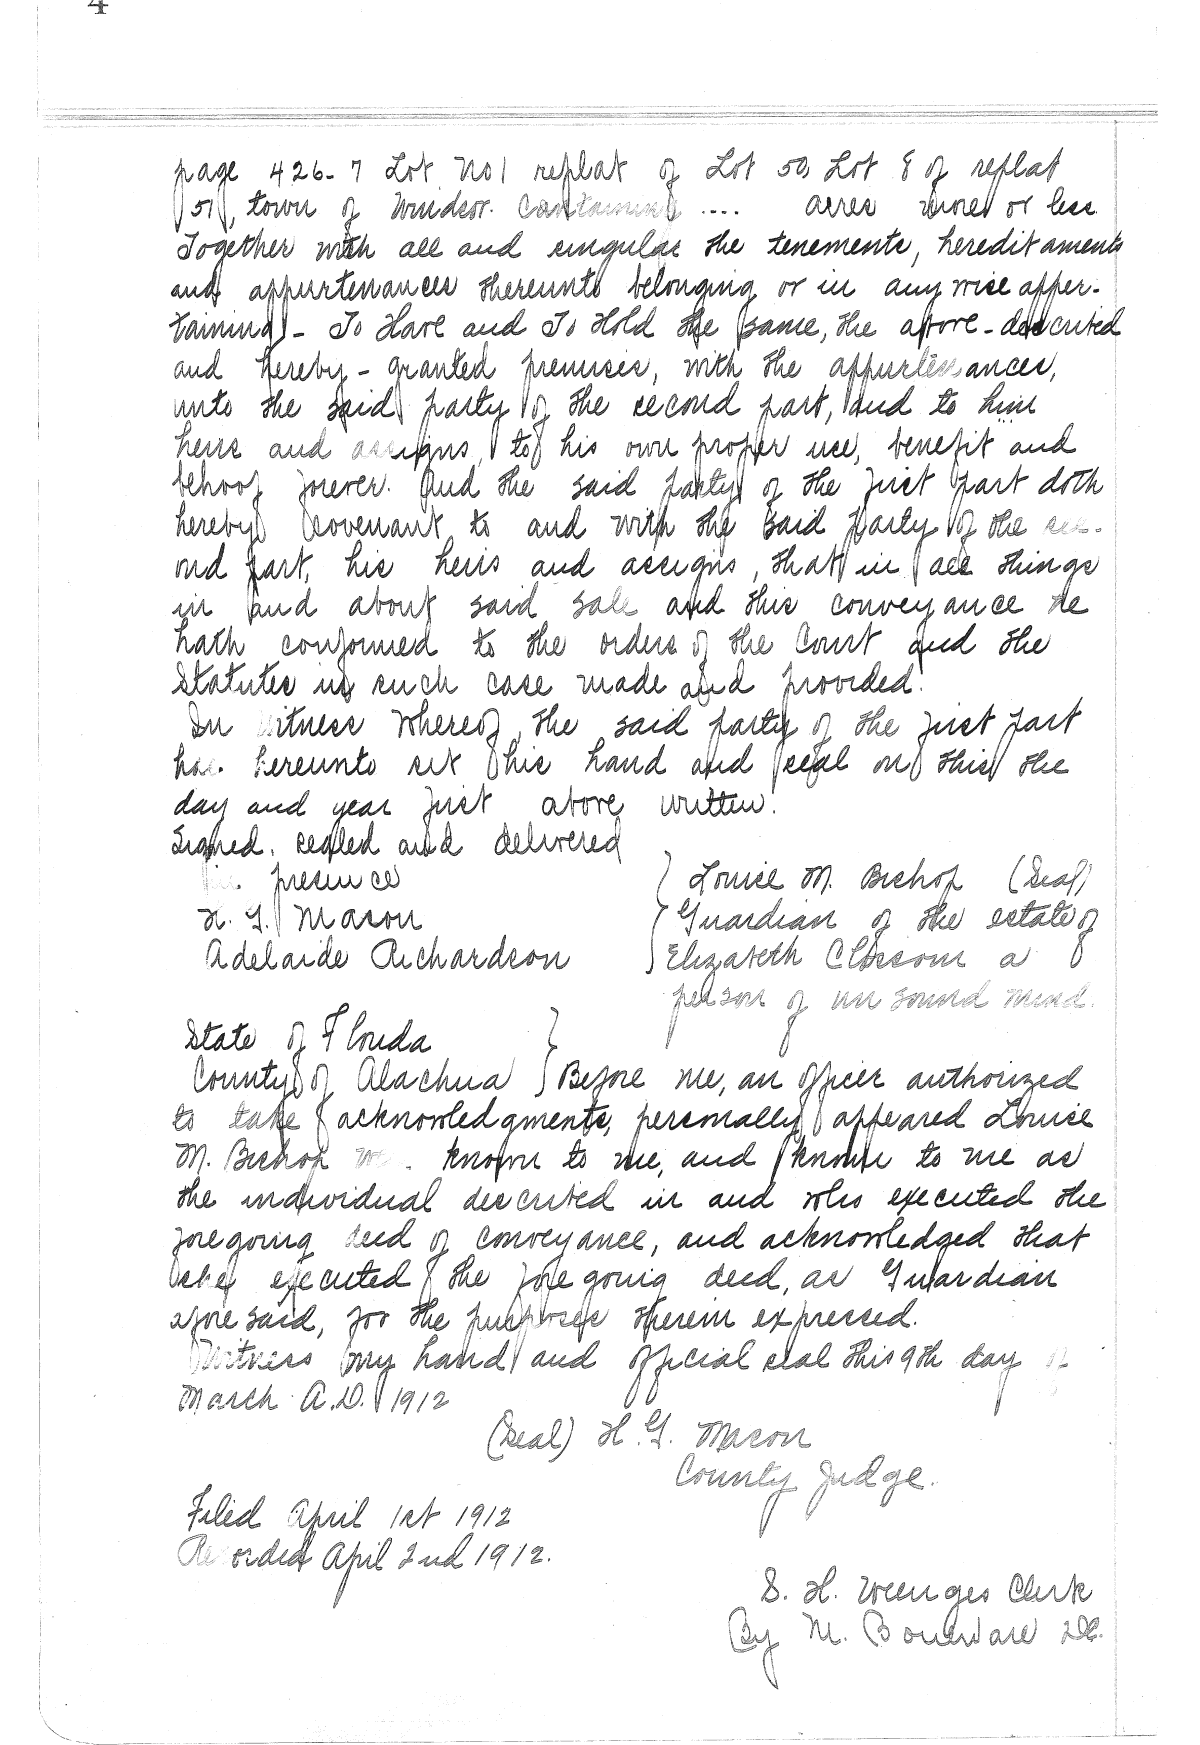 4
page 426-7 Lot No 1 replat of Lot 50, Lot 8 of replat
51, town of Windsor. Containing .... acres more or less.
Together with all and singular the tenements, hereditaments
and appurtenances thereunto belonging or in anywise apper-
taining - To Have and To Hold the same, the above-described
and hereby-granted premises, with the appurtenances,
unto the said party of the second part, and to him
heirs and assigns, to his own proper use, benefit and
behoof forever. And the said party of the first part doth
hereby covenant to and with the said party of the sec-
ond part, his heirs and assigns, that in all things
in and about said sale and this conveyance he
hath conformed to the orders of the Court and the
Statutes in such case made and provided.
In Witness Whereof, the said party of the first part
has hereunto set his hand and seal on this the
day and year first above written.
Signed, sealed and delivered
in presence } Louise M. Bishop (Seal)
H. G. Mason { Guardian of the estate of
Adelaide Richardson } Elizabeth Clossom a
person of un sound mind.
State of Florida }
County of Alachua } Before me, an officer authorized
to take acknowledgments, personally appeared Louise
M. Bishop known to me, and known to me as
the individual described in and who executed the
foregoing deed of conveyance, and acknowledged that
she executed the foregoing deed, as Guardian
aforesaid, for the purposes therein expressed.
Witness my hand and official seal this 9th day of
March A.D. 1912
(Seal) H. G. Mason
County Judge.
Filed April 1st 1912
Recorded April 2nd 1912.
S. H. Wienges Clerk
By M. Boulware D.C.